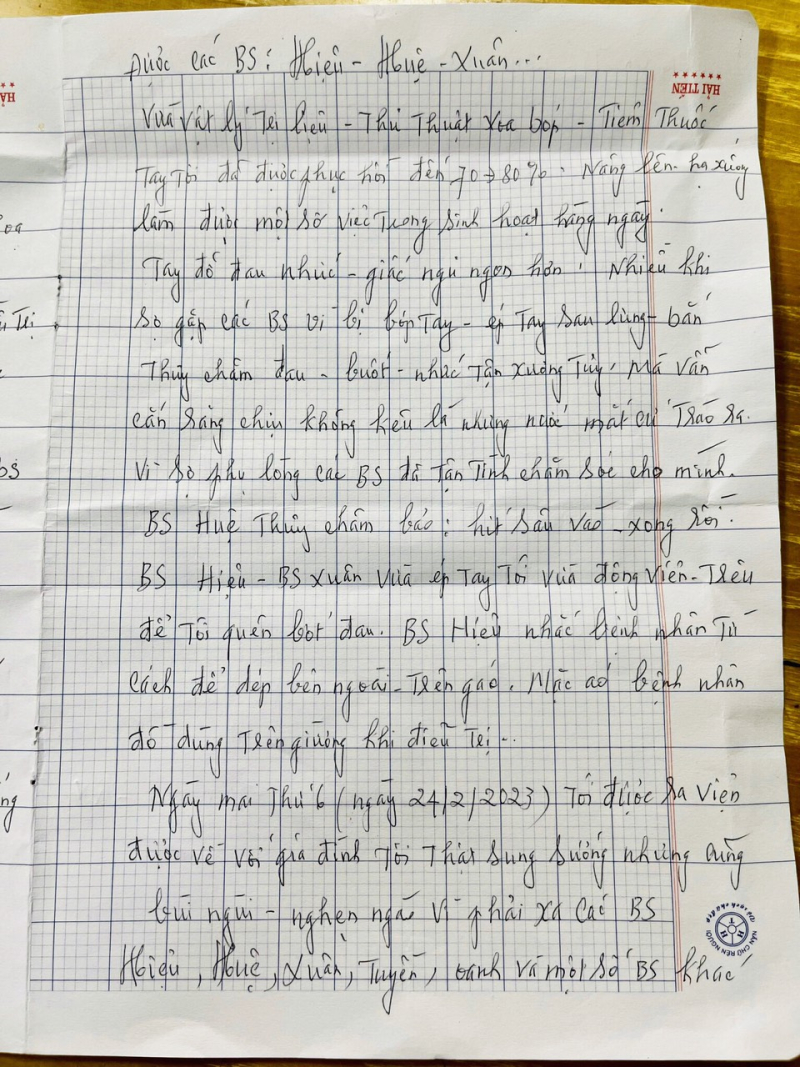 Được các BS: Hiệu - Huệ - Xuân...
HẢI TIẾN
Vừa vật lý trị liệu - Thủ Thuật xoa bóp - Tiêm Thuốc
Tay Tôi đã được phục hồi đến 70 → 80%. Nâng lên - hạ xuống
làm được một số việc trong sinh hoạt hàng ngày.
Tay đỡ đau nhức - giấc ngủ ngon hơn. Nhiều khi
sợ gặp các BS vì bị bóp Tay - ép Tay sau lưng - bấn
Thủy châm đau - buốt - nhức Tận xương Tủy, mà vẫn
cắn răng chịu không kêu la nhưng nước mắt cứ Trào ra.
Vì sợ phụ lòng các BS đã Tận Tình chăm sóc cho mình.
BS Huệ Thủy châm bảo: hít sâu vào - xong rồi.
BS Hiệu - BS Xuân vừa ép Tay Tôi vừa động viên - Trêu
để Tôi quên bớt đau. BS Hiệu nhắc bệnh nhân Từ
cách để dép bên ngoài - Trên giá. Mặc áo bệnh nhân
đồ dùng Trên giường khi điều Trị...
Ngày mai Thứ 6 (ngày 24/2/2023) Tôi được ra viện
được về với gia đình Tôi Thật sung sướng nhưng cũng
bùi ngùi - nghẹn ngào vì phải xa các BS
Hiệu, Huệ, Xuân, Tuyến, Oanh và một số BS khác